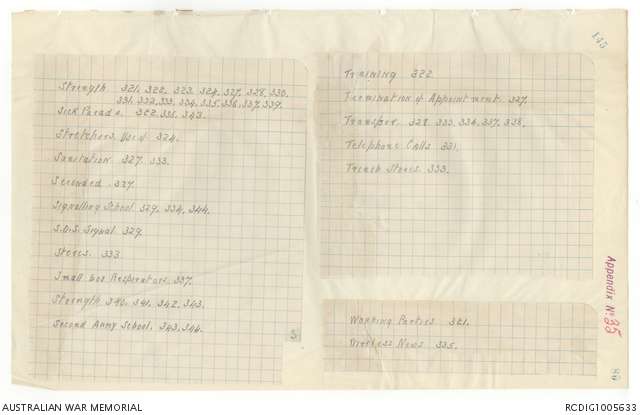 Strength 321, 322, 323, 324, 327, 328, 330,
331, 332, 333, 334, 335, 336, 337, 339.
Sick Parade. 322, 335, 343.
Stretchers, Use of 324.
Sanitation. 327, 333.
Seconded. 327.
Signalling School. 329, 334, 344.
S.O.S. Signal. 329.
Stores. 333.
Small box Respirators. 337.
Strength 340, 341, 342, 343.
Second Army School. 343, 344.
S
Training 322.
Termination of Appointment. 327.
Transfer. 328, 333, 334, 337, 338.
Telephone Calls 331.
Trench Stores. 333.
Working Parties. 321.
Wireless News 335.
145
Appendix No. 35
AUSTRALIAN WAR MEMORIAL
RCDIG1005633